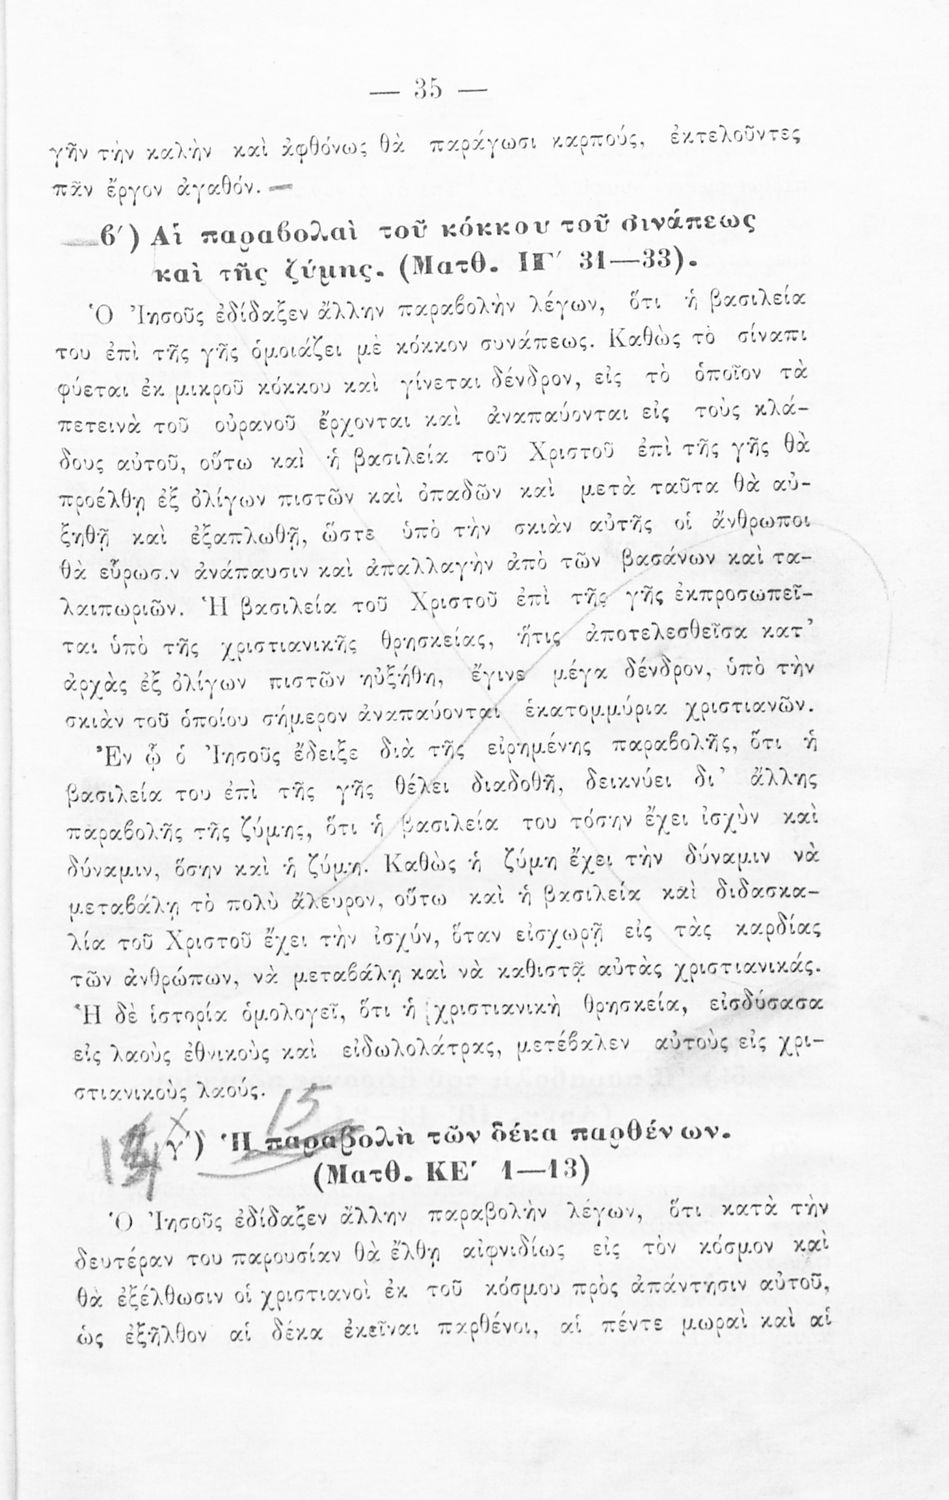 — 35 —
γῆν τὴν καλὴν καὶ ἀφθόνως θὰ παράγωσι καρπούς, ἐκτελοῦντες
πᾶν ἔργον ἀγαθόν. —
β′) Αἱ παραβολαὶ τοῦ κόκκου τοῦ σινάπεως
καὶ τῆς ζύμης. (Ματθ. ΙΓ′ 31—33).
Ὁ Ἰησοῦς ἐδίδαξεν ἄλλην παραβολὴν λέγων, ὅτι ἡ βασιλεία
του ἐπὶ τῆς γῆς ὁμοιάζει μὲ κόκκον συνάπεως. Καθὼς τὸ σίναπι
φύεται ἐκ μικροῦ κόκκου καὶ γίνεται δένδρον, εἰς τὸ ὁποῖον τὰ
πετεινὰ τοῦ οὐρανοῦ ἔρχονται καὶ ἀναπαύονται εἰς τοὺς κλά-
δους αὐτοῦ, οὕτω καὶ ἡ βασιλεία τοῦ Χριστοῦ ἐπὶ τῆς γῆς θὰ
προέλθῃ ἐξ ὀλίγων πιστῶν καὶ ὀπαδῶν καὶ μετὰ ταῦτα θὰ αὐ-
ξηθῇ καὶ ἐξαπλωθῇ, ὥστε ὑπὸ τὴν σκιὰν αὐτῆς οἱ ἄνθρωποι
θὰ εὕρωσ.ν ἀνάπαυσιν καὶ ἀπαλλαγὴν ἀπὸ τῶν βασάνων καὶ τα-
λαιπωριῶν. Ἡ βασιλεία τοῦ Χριστοῦ ἐπὶ τῆς γῆς ἐκπροσωπεῖ-
ται ὑπὸ τῆς χριστιανικῆς θρησκείας, ἥτις ἀποτελεσθεῖσα κατ’
ἀρχὰς ἐξ ὀλίγων πιστῶν ηὐξήθη, ἔγινε μέγα δένδρον, ὑπὸ τὴν
σκιὰν τοῦ ὁποίου σήμερον ἀναπαύονται ἑκατομμύρια χριστιανῶν.
Ἐν ᾧ ὁ Ἰησοῦς ἔδειξε διὰ τῆς εἰρημένης παραβολῆς, ὅτι ἡ
βασιλεία του ἐπὶ τῆς γῆς θέλει διαδοθῆ, δεικνύει δι’ ἄλλης
παραβολῆς τῆς ζύμης, ὅτι ἡ βασιλεία του τόσην ἔχει ἰσχὺν καὶ
δύναμιν, ὅσην καὶ ἡ ζύμη. Καθὼς ἡ ζύμη ἔχει τὴν δύναμιν νὰ
μεταβάλῃ τὸ πολὺ ἄλευρον, οὕτω καὶ ἡ βασιλεία καὶ διδασκα-
λία τοῦ Χριστοῦ ἔχει τὴν ἰσχύν, ὅταν εἰσχωρῇ εἰς τὰς καρδίας
τῶν ἀνθρώπων, νὰ μεταβάλῃ καὶ νὰ καθιστᾷ αὐτὰς χριστιανικάς.
Ἡ δὲ ἱστορία ὁμολογεῖ, ὅτι ἡ χριστιανικὴ θρησκεία, εἰσδύσασα
εἰς λαοὺς ἐθνικοὺς καὶ εἰδωλολάτρας, μετέβαλεν αὐτοὺς εἰς χρι-
στιανικοὺς λαούς.
15
γ′) Ἡ παραβολὴ τῶν δέκα παρθένων.
(Ματθ. ΚΕ′ 1—13)
Ὁ Ἰησοῦς ἐδίδαξεν ἄλλην παραβολὴν λέγων, ὅτι κατὰ τὴν
δευτέραν του παρουσίαν θὰ ἔλθῃ αἰφνιδίως εἰς τὸν κόσμον καὶ
θὰ ἐξέλθωσιν οἱ χριστιανοὶ ἐκ τοῦ κόσμου πρὸς ἀπάντησιν αὐτοῦ,
ὡς ἐξῆλθον αἱ δέκα ἐκεῖναι παρθένοι, αἱ πέντε μωραὶ καὶ αἱ